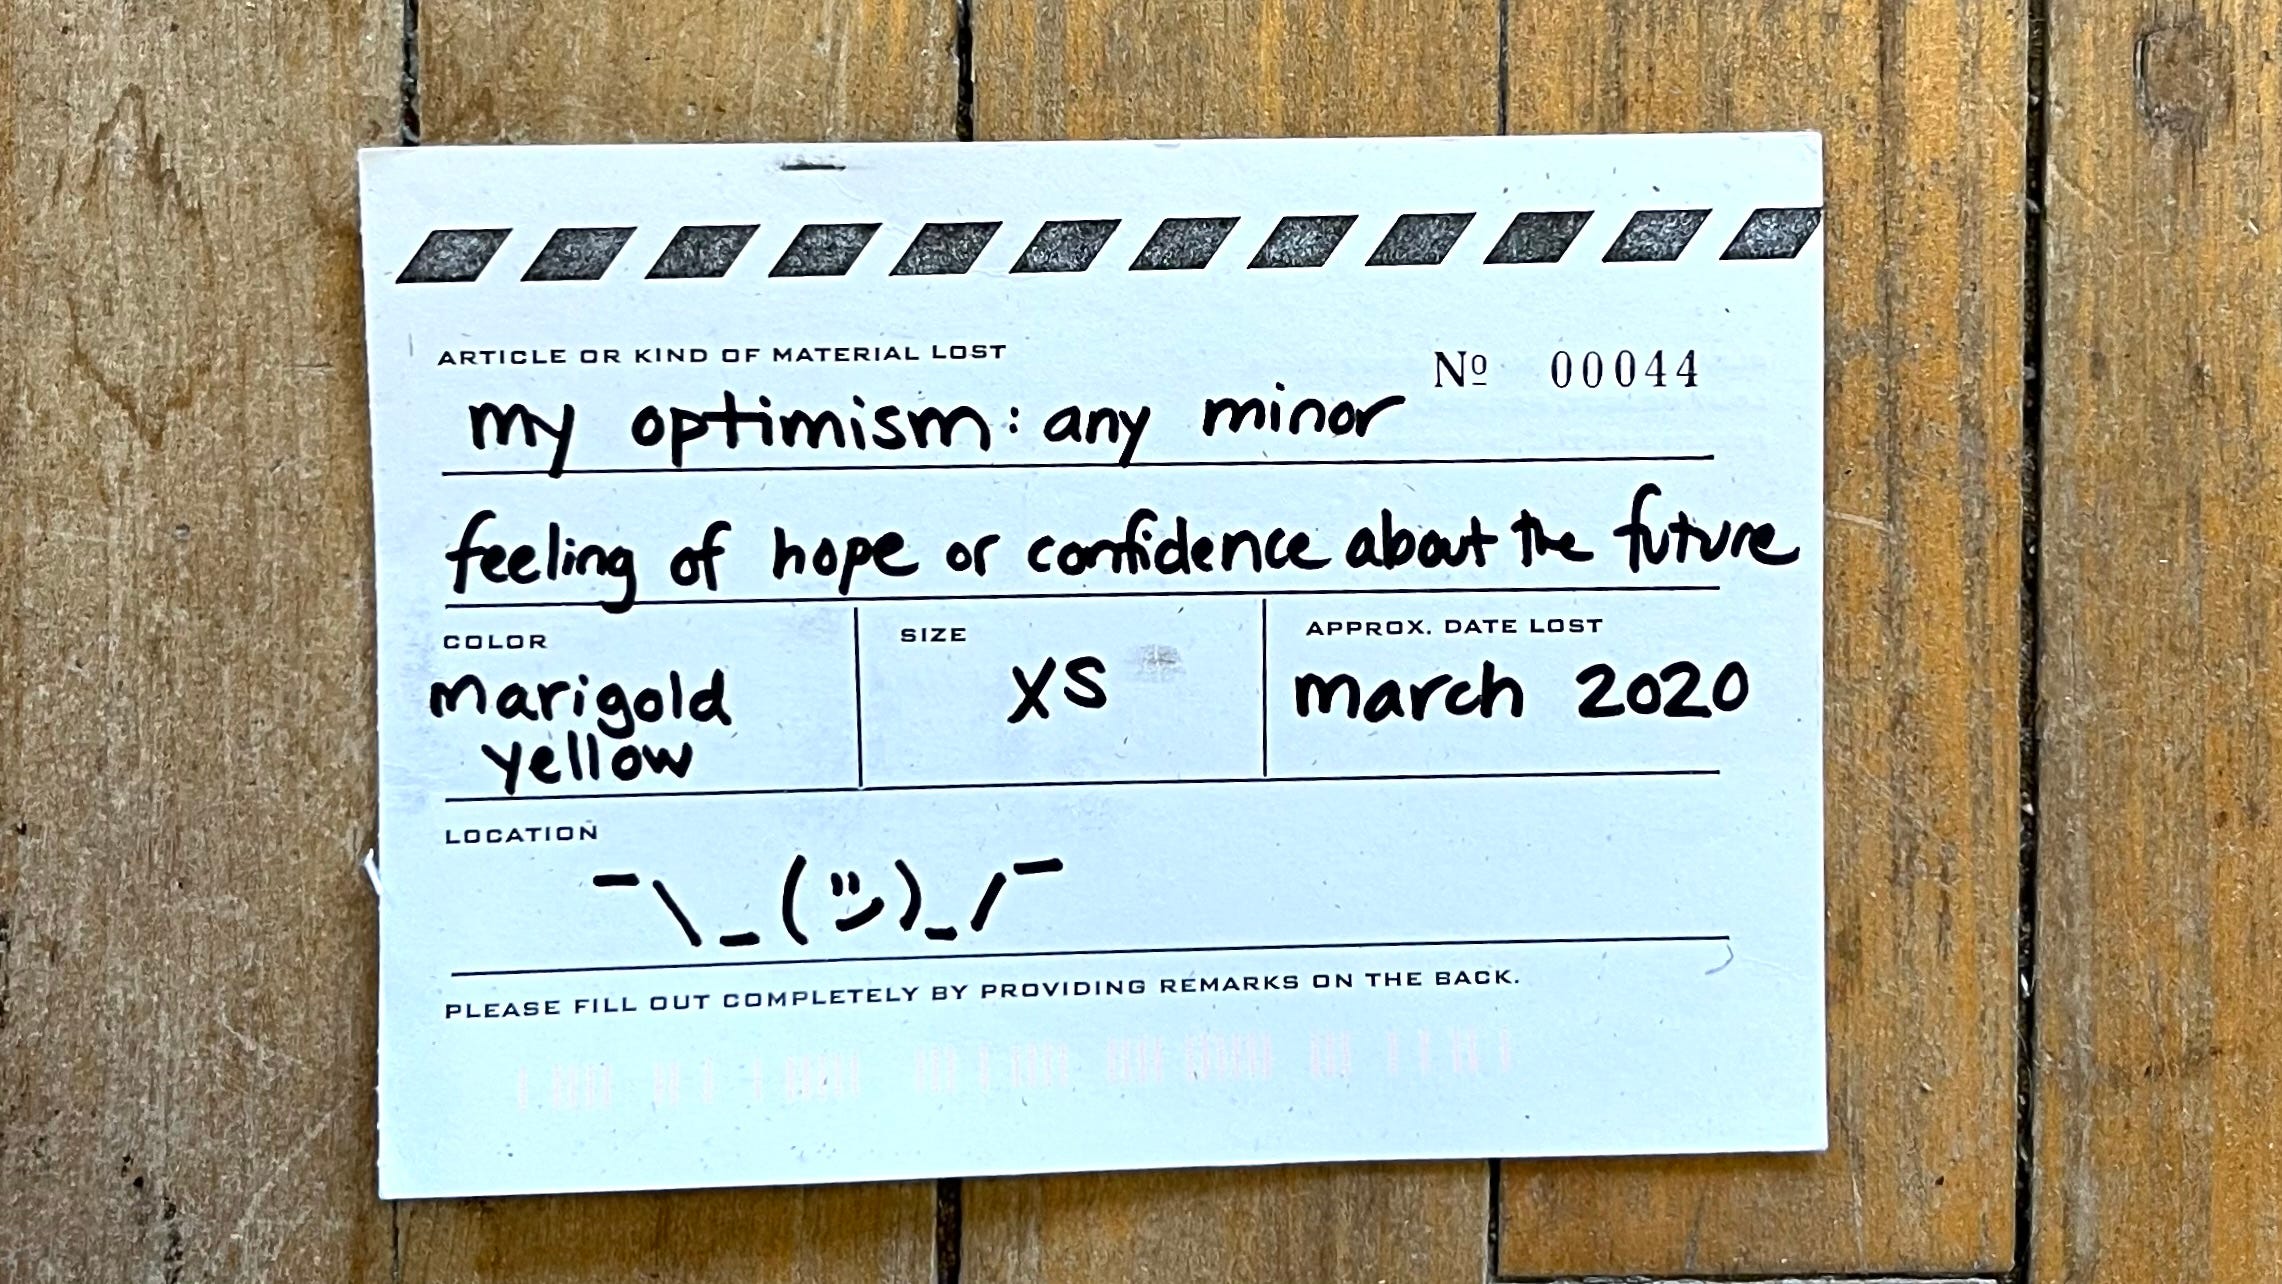 ARTICLE OR KIND OF MATERIAL LOST
Nº 00044
my optimism: any minor
feeling of hope or confidence about the future
COLOR
marigold
yellow
SIZE
XS
APPROX. DATE LOST
march 2020
LOCATION
¯\_(ツ)_/¯
PLEASE FILL OUT COMPLETELY BY PROVIDING REMARKS ON THE BACK.